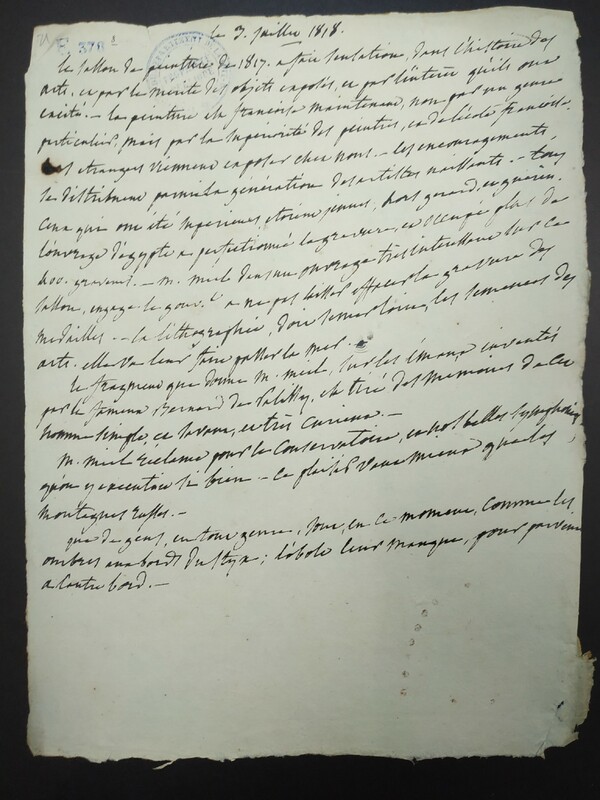 le 3. juillet 1818.
le sallon de peinture de 1817. a fait sensation, dans l'histoire des
arts, et par le merite des objets exposés, et par l'interêt qu'ils ont
excité. - la peinture est françoise maintenant, non par un genre
particulier, mais par la superiorité des peintres, et de l'école françoise.
les etrangers viennent exposer chez nous. - les encouragements,
se distribuent parmi la génération des artistes naissants. - tous
ceux que ont été superieurs, etoient jeunes, hors gerard, et guerin.
l'ouvrage d'égypte a perfectionné la gravure, et occupé plus de
400. graveurs. - m. miel dans un ouvrage très interessant sur ce
sallon, engage le gouv.t a ne pas laisser effacer la gravure des
medailles. - la lithographie doit semer loin, les semences des
arts. elle va leur faire passer la mer.
le fragment que donne m. miel, sur les émaux inventés
par le fameux Bernard de Palissy, est tiré des memoires de cet
homme simple, et savant, et très curieux. -
m. miel reclame pour le Conservatoire, et nos belles symphonies,
qu'on y executoit si bien - ce plaisir vaut mieux que les
montagnes russes. -
que de gens, en tout genre, sont, en ce moment, comme les
ombres aux bords du styx; l'obole leur manque, pour parvenir
a l'autre bord. -